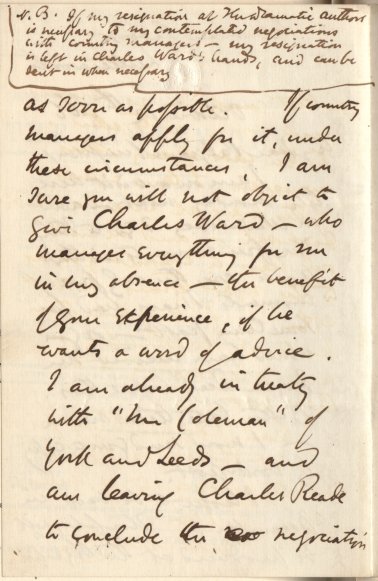 N.B. If my resignation at the Dramatic Authors
is necessary to my contemplated negotiations
with country managers — my resignation
is left in Charles Ward's hands, and can be
sent in when necessary
as soon as possible. If country
managers apply for it, under
these circumstances, I am
sure you will not object to
give Charles Ward — who
manages everything for me
in my absence — the benefit
of your experience, if he
wants a word of advice.
I am already in treaty
with "Mr Coleman" of
York and Leeds — and
am leaving Charles Reade
to conclude the negociation